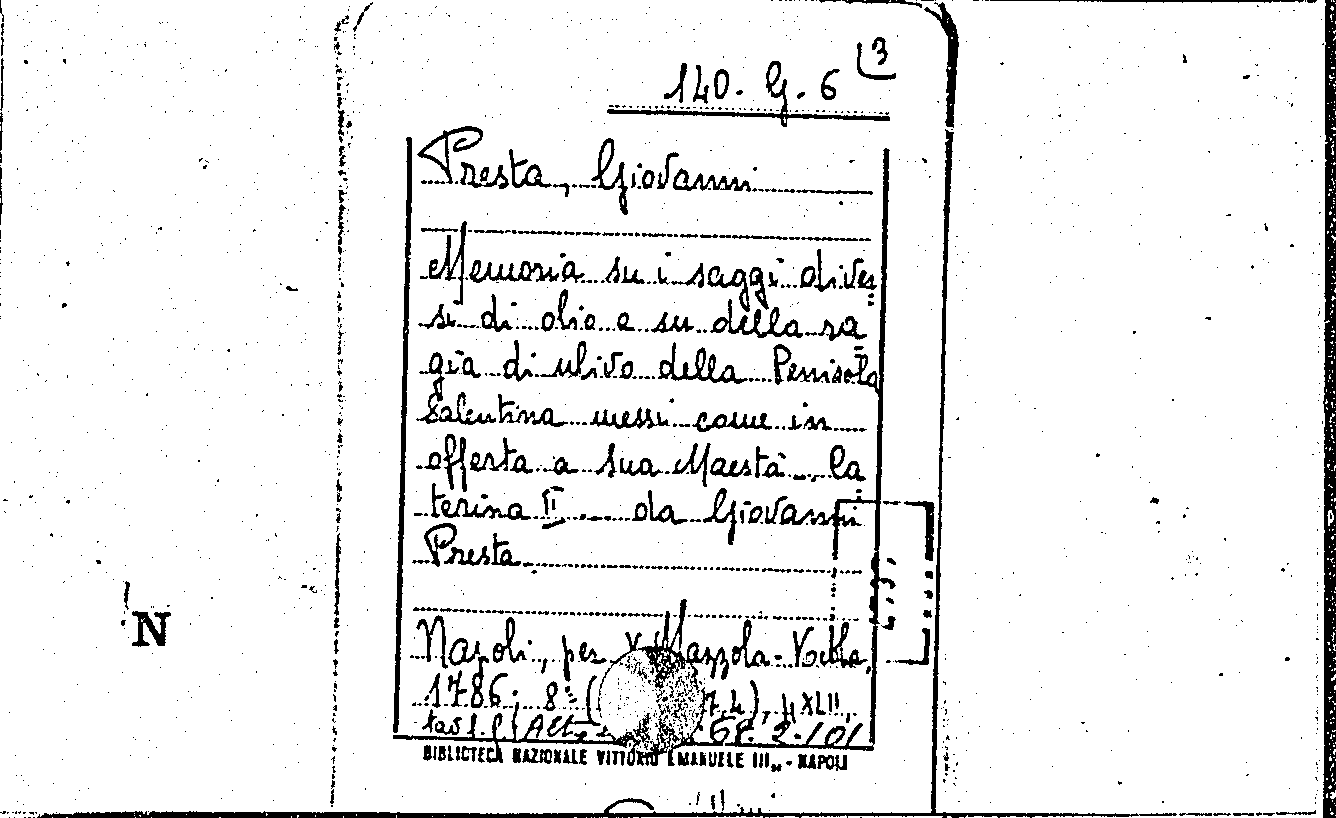 3
140. G. 6
Presta, Giovanni
Memoria su i saggi diver
si di olio e su della ra
gia di ulivo della Penisola
Salentina messi come in
offerta a sua Maestà ... Ca
terina II ... da Giovanni
Presta.
N
Napoli, per V. Mazzola-Vocola,
1786; 8° ( 7,4), XLII,
tav. 68. 2-101
BIBLIOTECA NAZIONALE VITTORIO EMANUELE III - NAPOLI